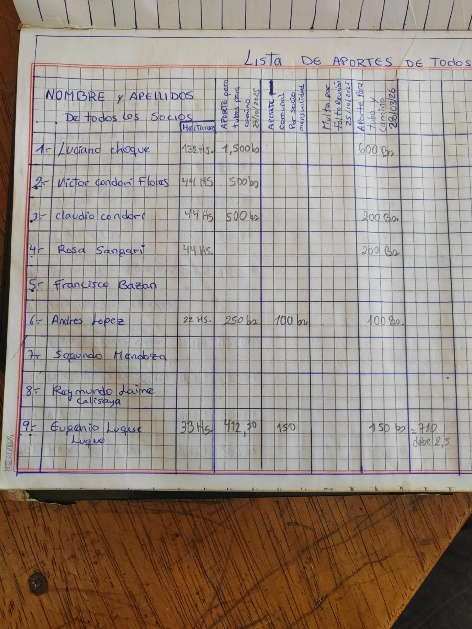 Lista DE APORTES DE Todos
NOMBRE y APEllIDOS
De todos los Socios
Hectareas
APORTE para tubos para camino
APORTE comunal Por socio mensualidad
Multa por
APorte Para tubo y Camino
1- Luciano choque 132 HS. 1,500 bs 600 Bs
2- Victor condori Flores 44 HS 500 bs
3- claudio condori 44 HS 500 bs 200 Bs
4- Rosa Sangari 44 HS. 200 Bs
5- Francisco Bazan
6- Andres Lopez 22 HS. 250 bs 100 bs 100 Bs
7- Segundo Mendoza
8- Raymundo Jaime
calisaya
9- Eugenio Luque 33 HS. 412,50 150 150 bs - 710
Luque debe 2,5